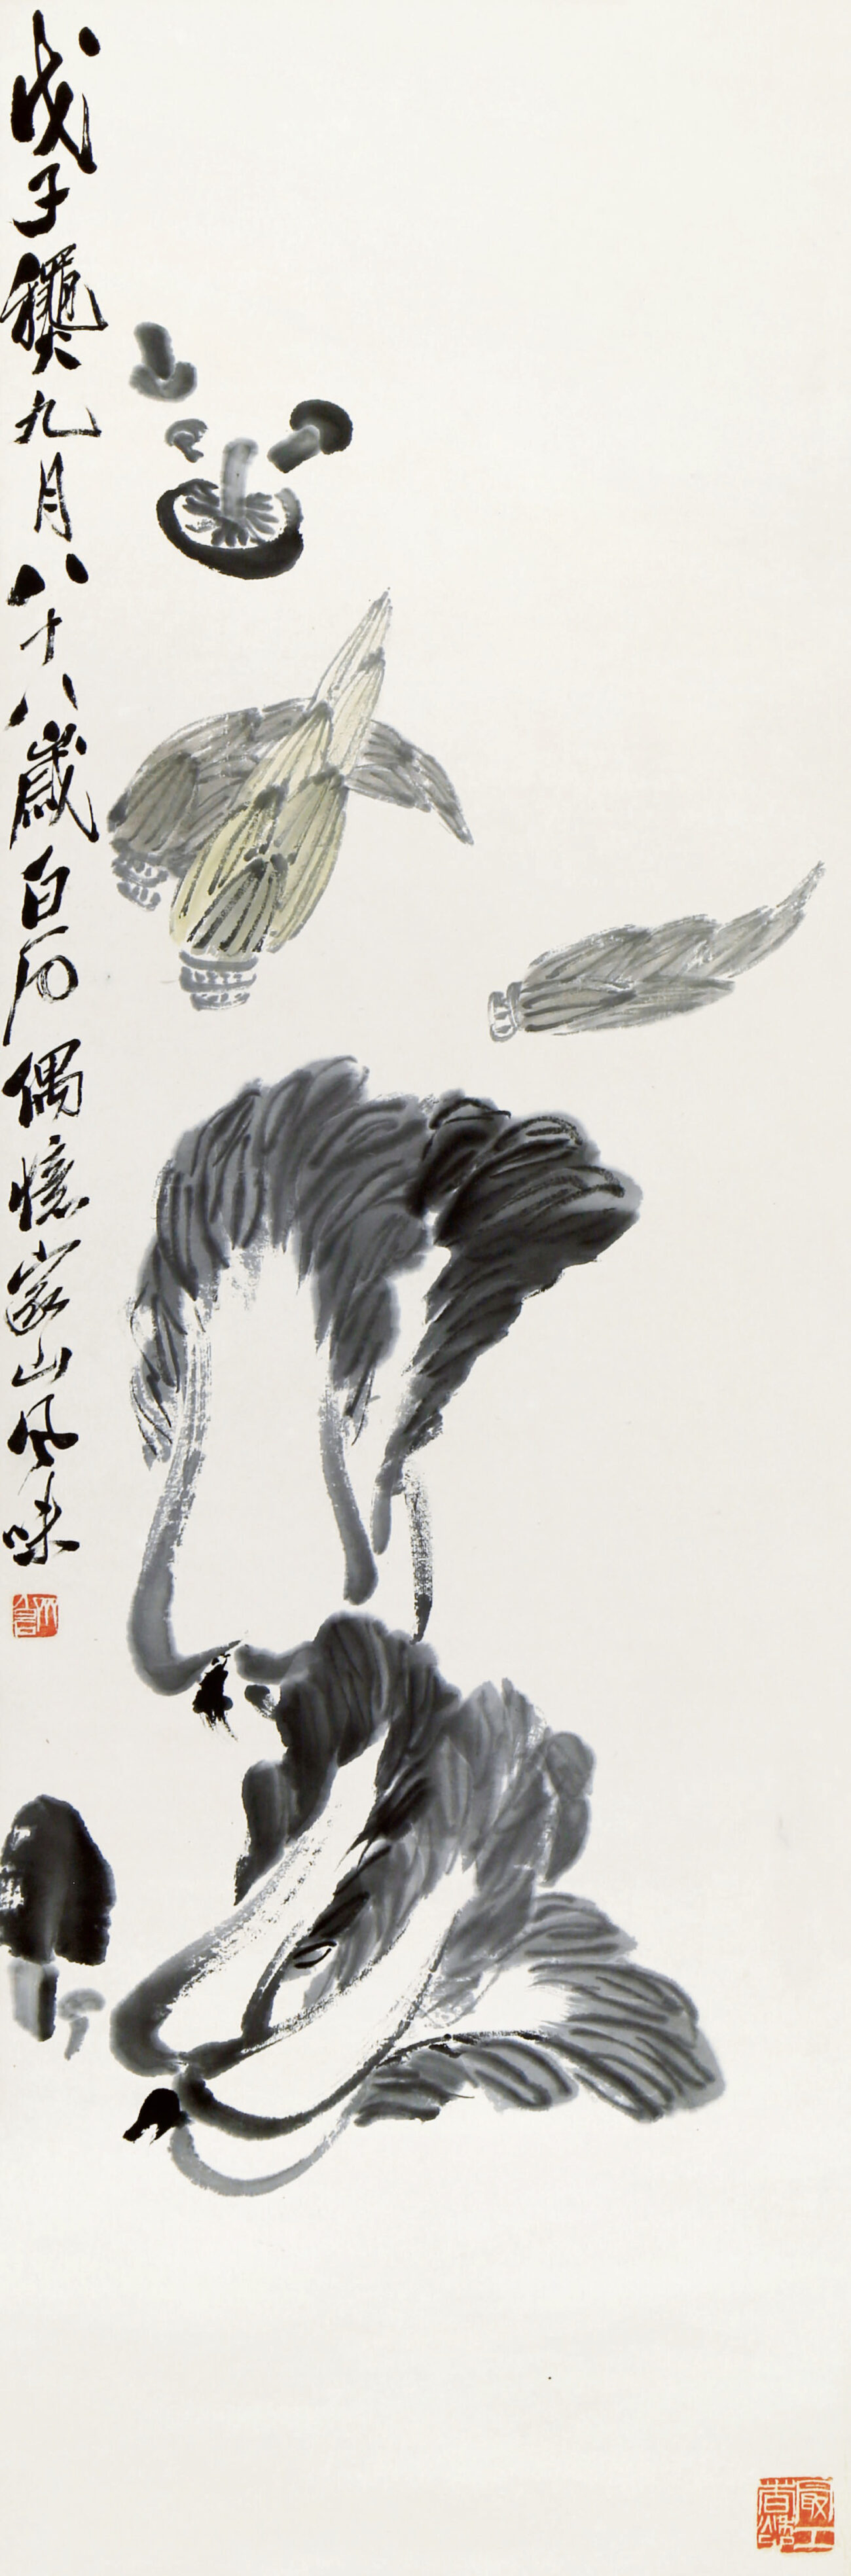 戊子龝九月八十八歲白石偶憶家山風味